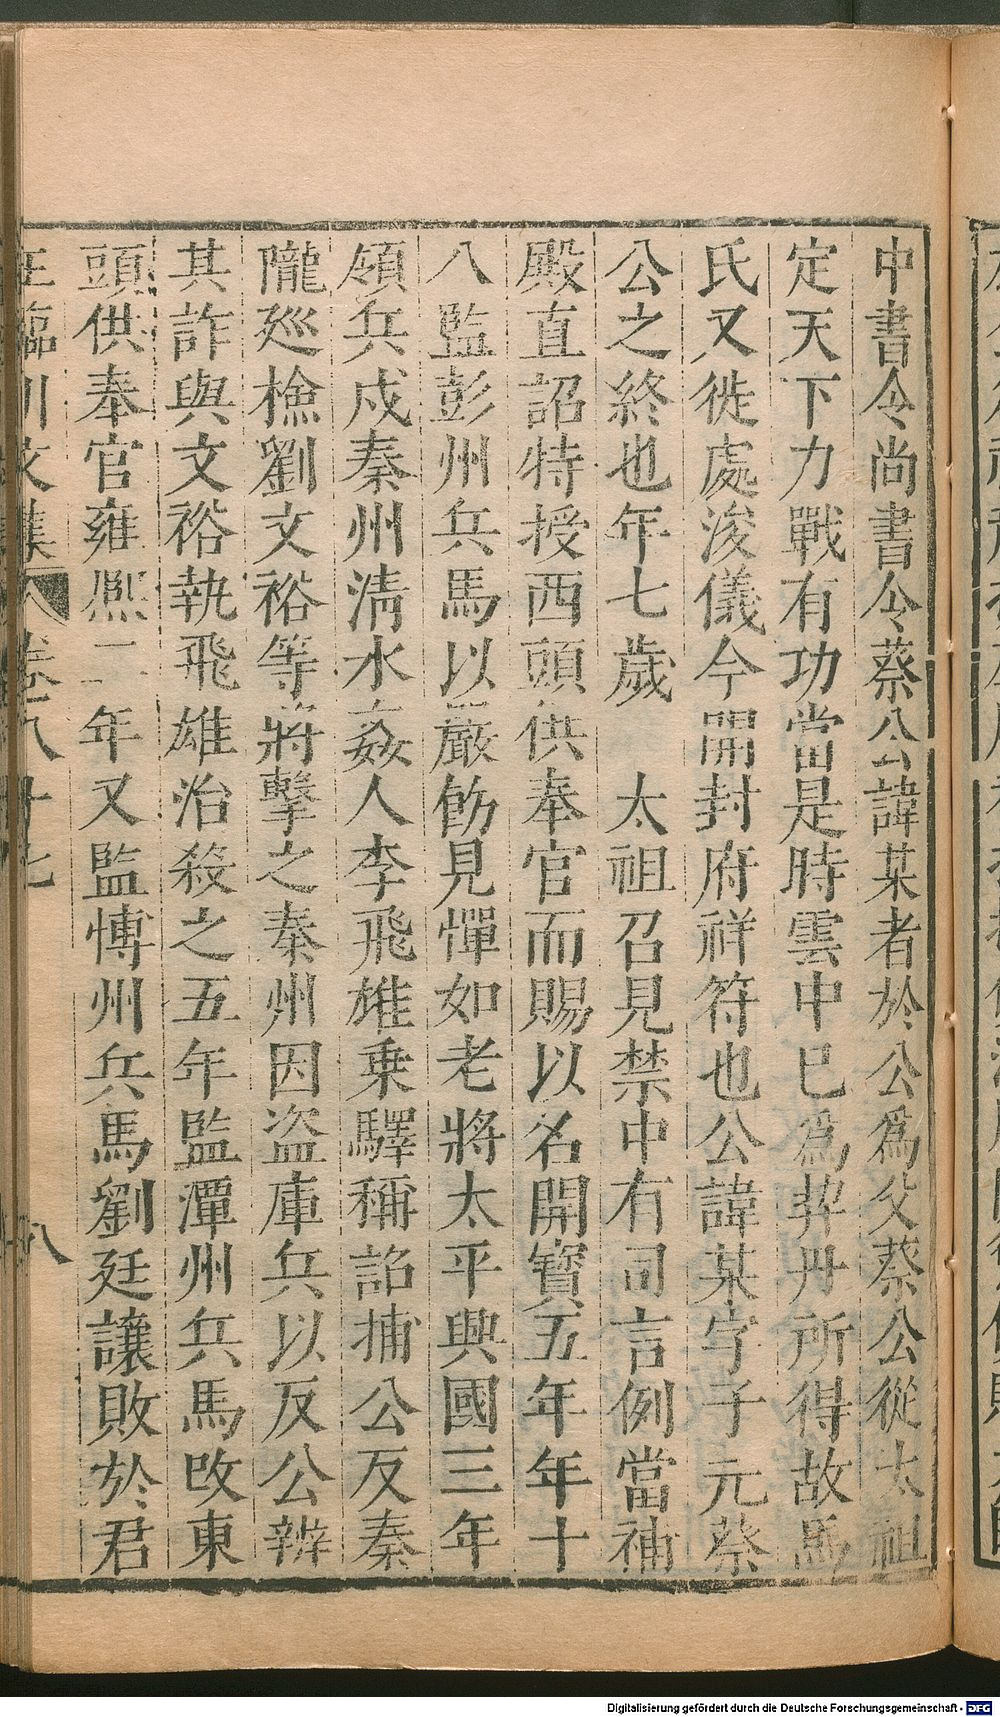 中書令尚書令蔡公諱某者於公爲父蔡公從太祖
定天下力戰有功當是時雲中巳爲契丹所得故馬
氏又徙處浚儀今開封府祥符也公諱某字子元蔡
公之終也年七歲　太祖召見禁中有司言例當補
殿直詔特授西頭供奉官而賜以名開寳五年年十
八監彭州兵馬以嚴飭見憚如老將太平興國三年
領兵戍秦州清水姦人李飛雄乗驛稱詔捕公及秦
隴廵檢劉文裕等將擊之秦州因盗庫兵以反公辨
其詐與文裕執飛雄治殺之五年監潭州兵馬改東
頭供奉官雍熙二年又監愽州兵馬劉廷讓敗於君
王臨川文集 卷八十七 八
Digitalisierung gefördert durch die Deutsche Forschungsgemeinschaft - DFG